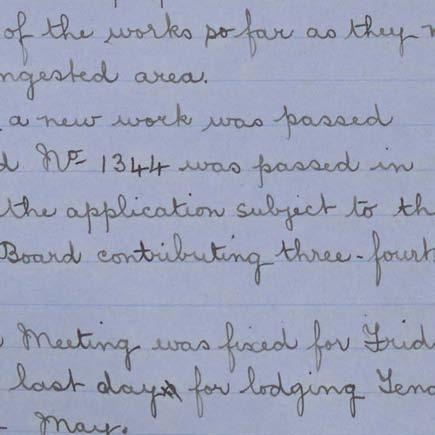 of the works so far as they
ngested area.
a new work was passed
d No 1344 was passed in
the application subject to th
Board contributing three-fourth
Meeting was fixed for Frid
last day for lodging Tend
May.